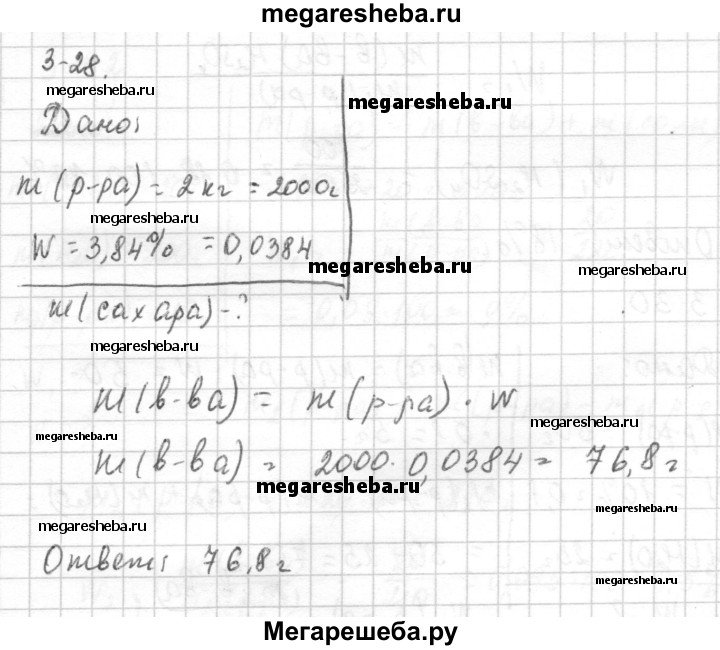 megaresheba.ru
3-28.
megaresheba.ru
megaresheba.ru
Дано:
m (р-ра) = 2 кг = 2000г
megaresheba.ru
W = 3,84% = 0,0384
megaresheba.ru
megaresheba.ru
m (сахара) - ?
megaresheba.ru
m (в-ва) = m (р-ра) · W
megaresheba.ru
megaresheba.ru
m (в-ва) = 2000 · 0,0384 = 76,8 г
megaresheba.ru
megaresheba.ru
megaresheba.ru
Ответ: 76,8 г
megaresheba.ru
Мегарешеба.ру